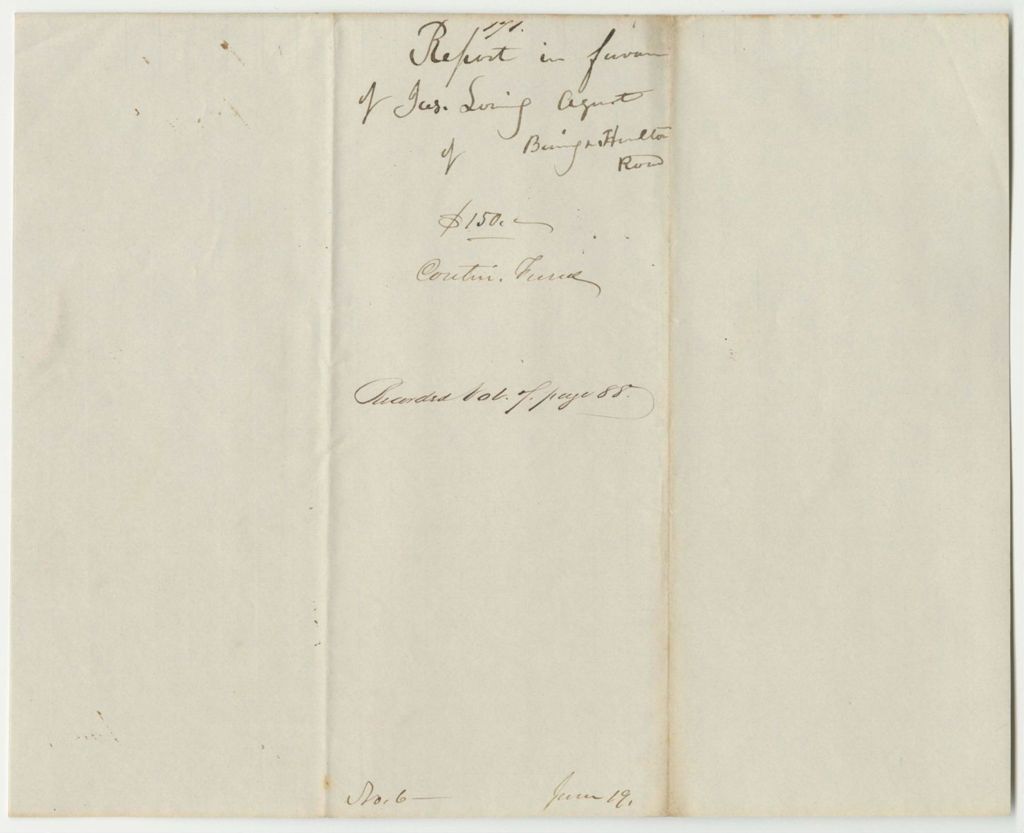 171.
Report in favour
of Jas. Loring Agent
of Baring & Houlton
Road
$150.
Contin. Fund
Recorded Vol. 7. page 88.
No. 6 — June 19.